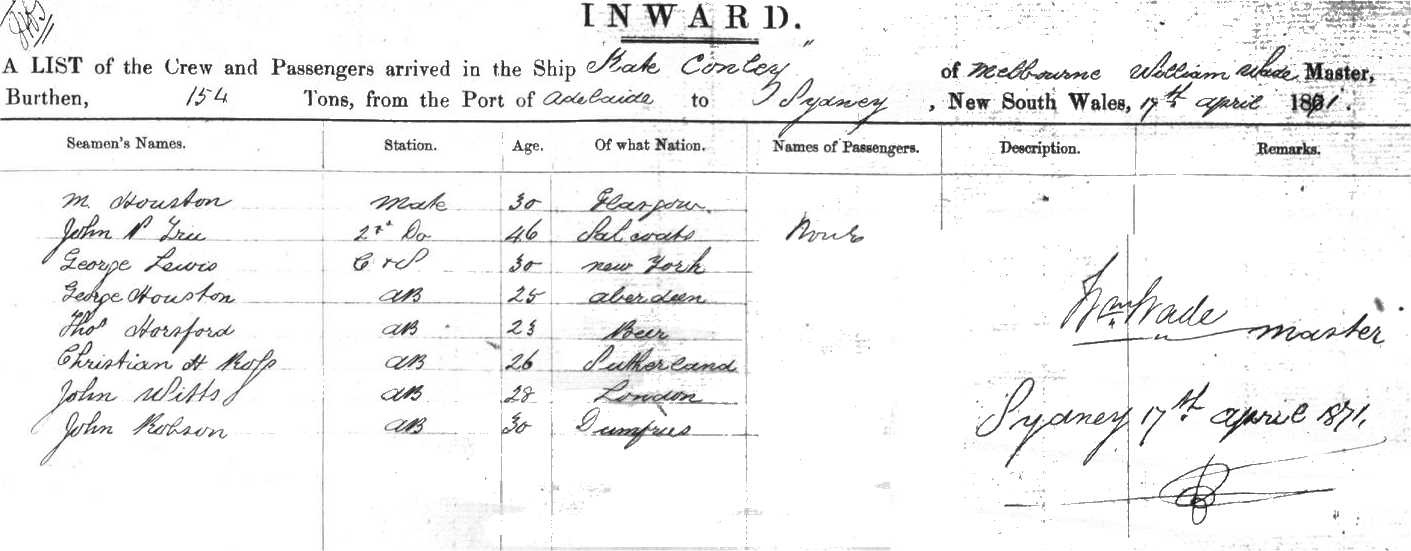 INWARD.
A LIST of the Crew and Passengers arrived in the Ship Kate Conley of Melbourne William Wade Master,
Burthen, 154 Tons, from the Port of Adelaide to Sydney, New South Wales, 17th April 1871.
Seamen's Names. Station. Age. Of what Nation. Names of Passengers. Description. Remarks.
M. Houston Mate 30 Glasgow.
John 46 Salcoats None
George Lewis C & S 30 New York
George Houston AB 25 Aberdeen
Thos Horsford AB 23 Beer
Christian H Ross AB 26 Sutherland
John Witts AB 28 London
John Robson AB 30 Dumfries
Wm Wade Master
Sydney 17th April 1871.